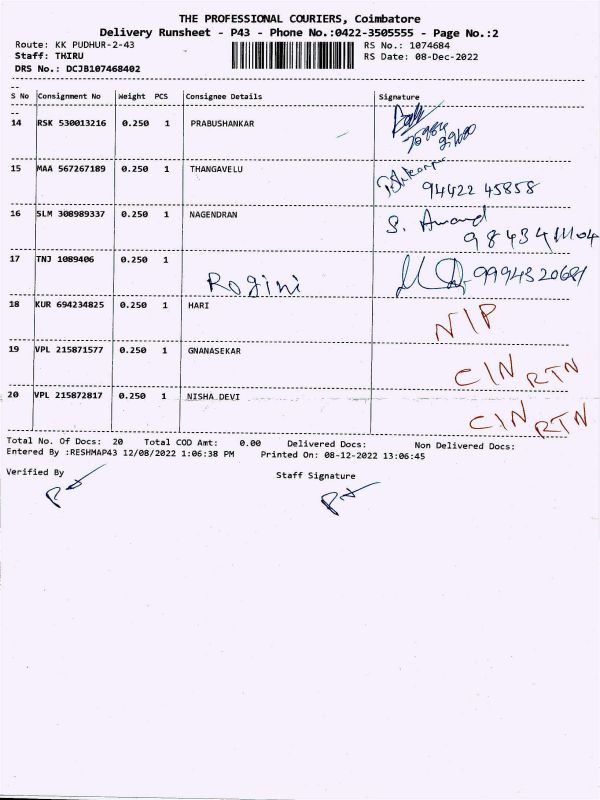 THE PROFESSIONAL COURIERS, Coimbatore
Delivery Runsheet - P43 - Phone No.:0422-3505555 - Page No.:2
Route: KK PUDHUR-2-43 RS No.: 1074684
Staff: THIRU RS Date: 08-Dec-2022
DRS No.: DCJB107468402
--
S No Consignment No Weight PCS Consignee Details Signature
--
14 RSK 530013216 0.250 1 PRABUSHANKAR
15 MAA 567267189 0.250 1 THANGAVELU
94422 45858
16 SLM 308989337 0.250 1 NAGENDRAN S. Anand
17 TNJ 1089406 0.250 1
Rogini 9994320681
18 KUR 694234825 0.250 1 HARI
NIP
19 VPL 215871577 0.250 1 GNANASEKAR
CIN RTN
20 VPL 215872817 0.250 1 NISHA DEVI
CIN RTN
Total No. Of Docs: 20 Total COD Amt: 0.00 Delivered Docs: Non Delivered Docs:
Entered By :RESHMAP43 12/08/2022 1:06:38 PM Printed On: 08-12-2022 13:06:45
Verified By Staff Signature